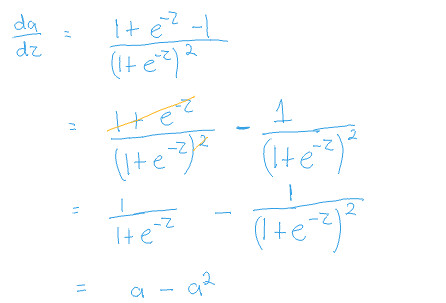 da/dz = (1 + e^-z - 1)/(1 + e^-z)^2
= (1 + e^-z)/(1 + e^-z)^2 - 1/(1 + e^-z)^2
= 1/(1 + e^-z) - 1/(1 + e^-z)^2
= a - a^2